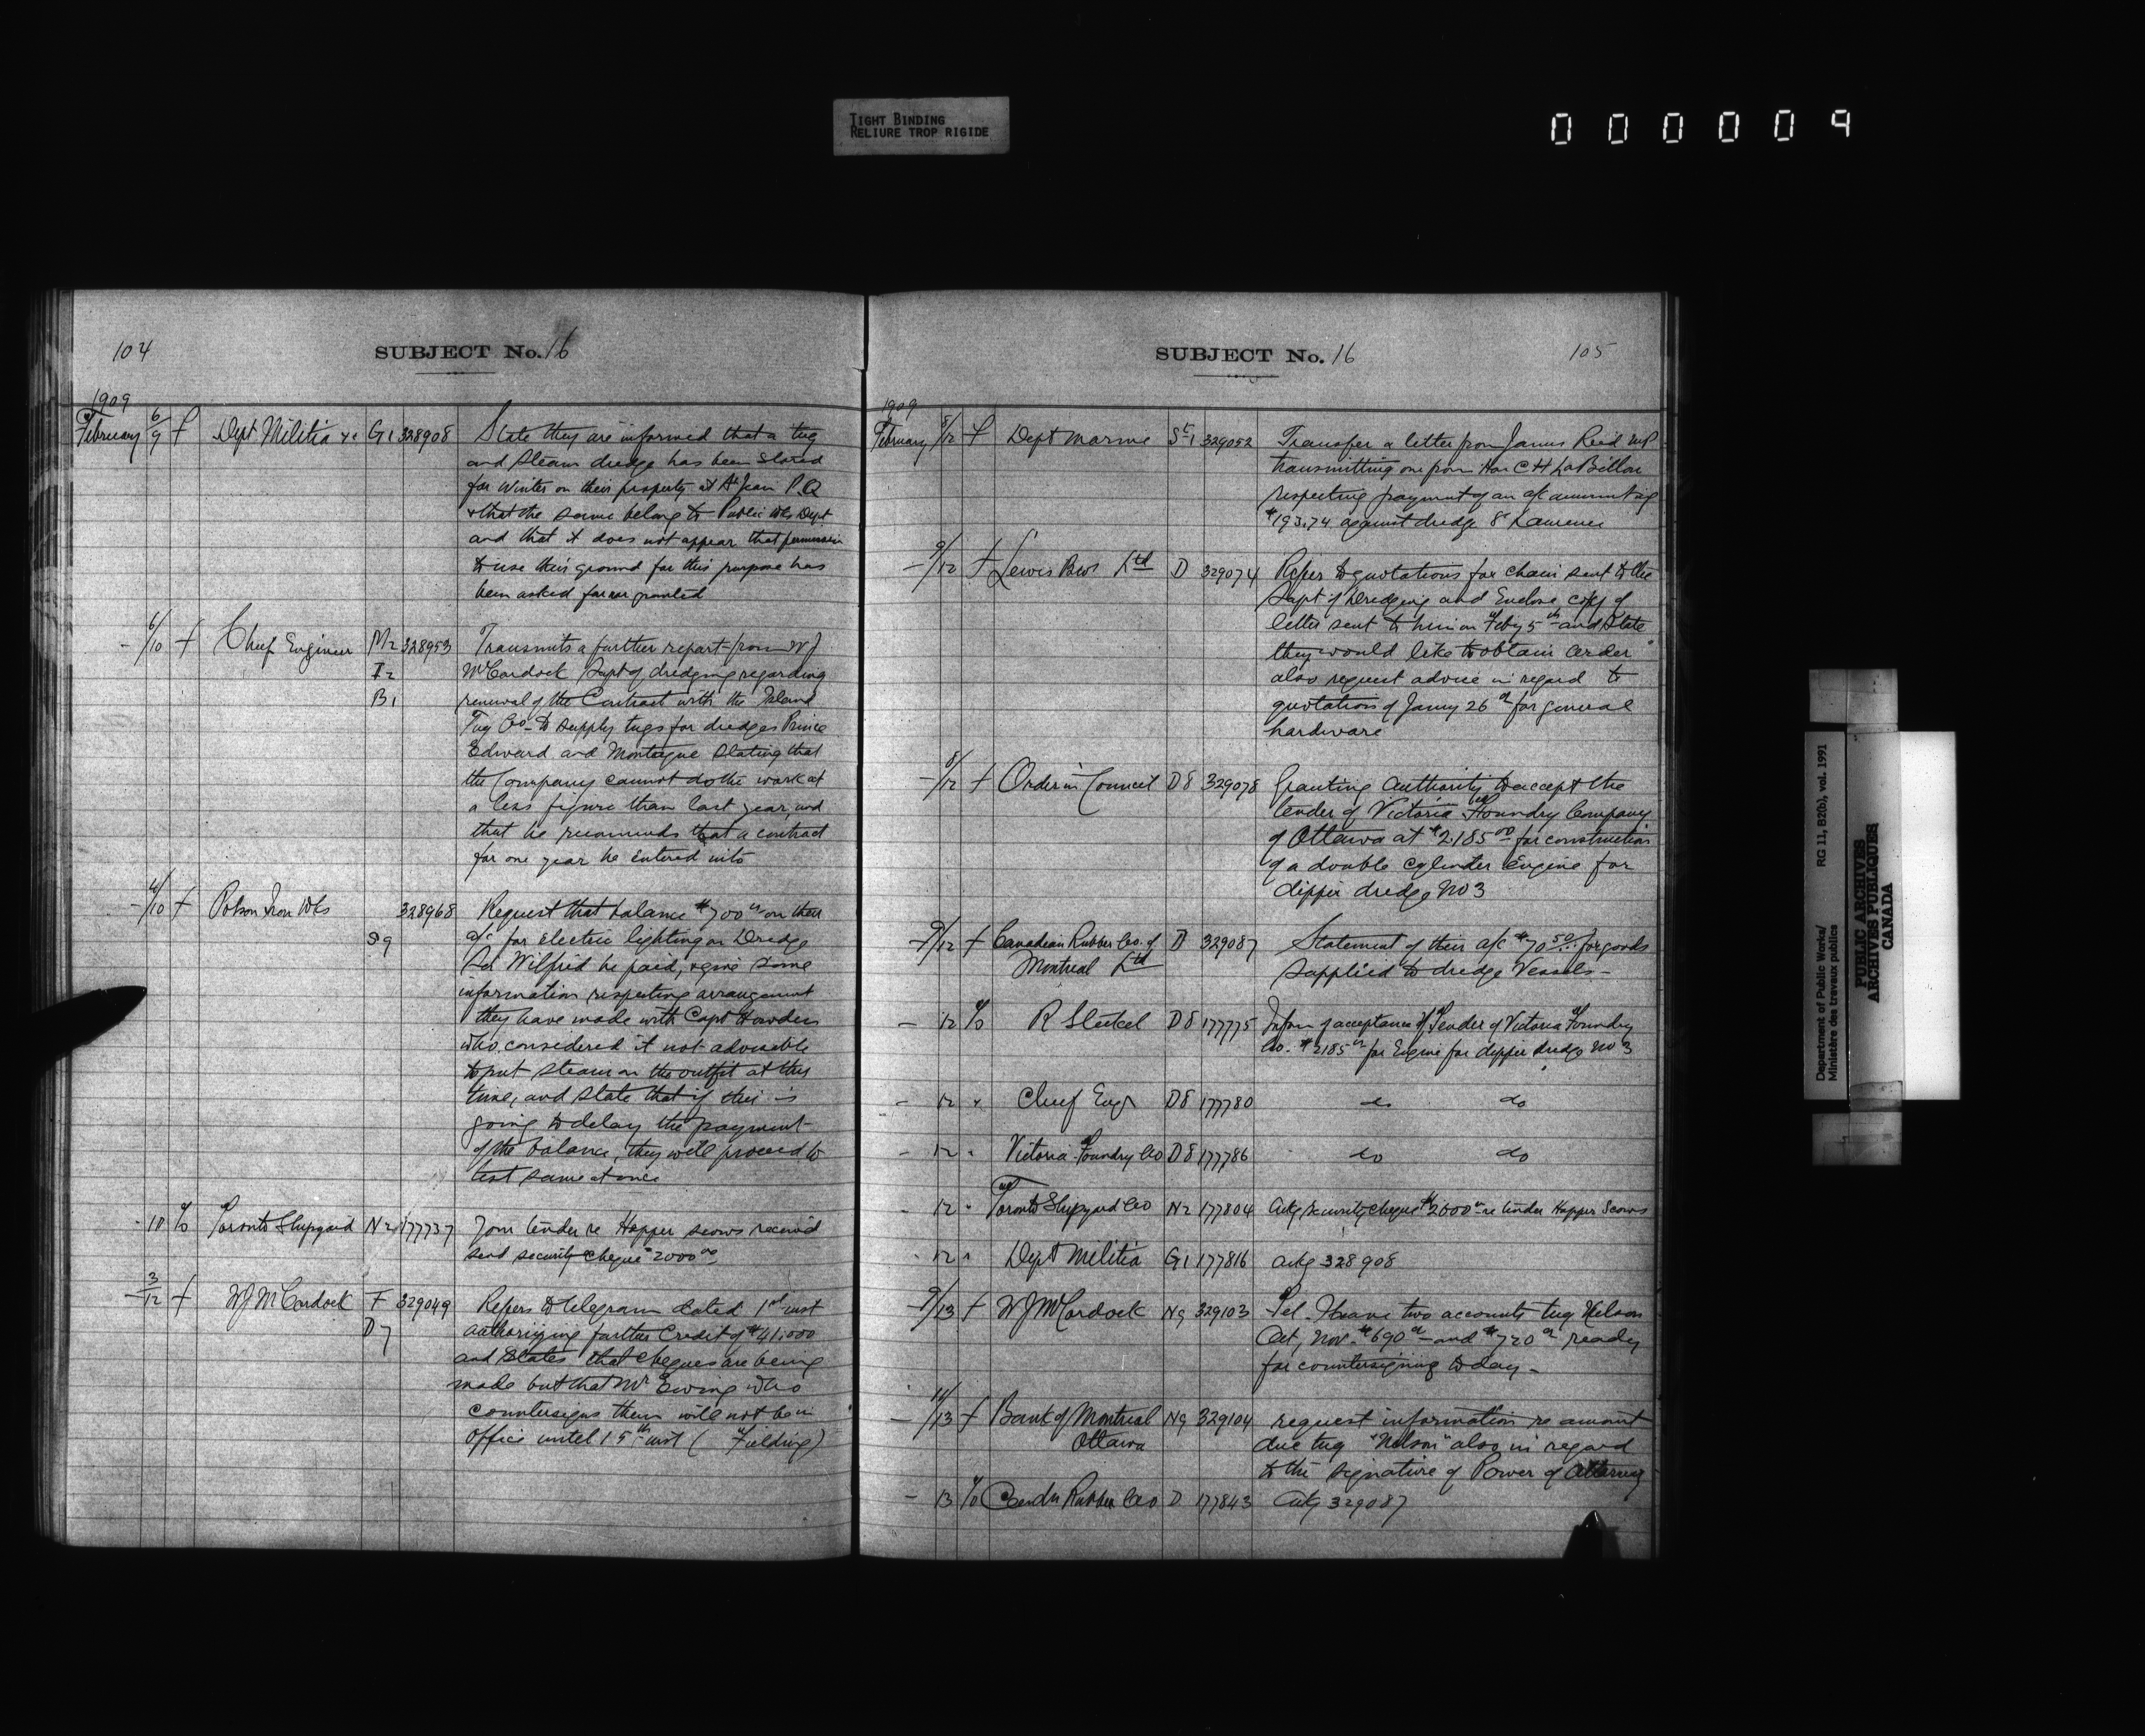 TIGHT BINDING
RELIURE TROP RIGIDE
000009
104
SUBJECT No. 16
1909
February 6/9 f Dept Militia &c G1 328908 State they are informed that a tug
and steam dredge has been stored
for winter on their property at St Jean P.Q
& that the same belong to Public Wks Dept
and that it does not appear that permission
to use their ground for this purpose has
been asked for nor granted
- 6/10 f Chief Engineer M2 328953 Transmits a further report from W J
I2 McCordock Supt of dredging regarding
B1 renewal of the Contract with the Island
Tug Co. to supply tugs for dredges Prince
Edward and Montague stating that
the Company cannot do the work at
a less figure than last year, and
that he recommends that a contract
for one year be entered into
- 4/10 f Polson Iron Wks 328968 Request that balance $700 00 on their
D9 a/c for electric lighting on Dredge
Sir Wilfrid be paid, & give some
information respecting arrangement
they have made with Capt Howden
who considered it not advisable
to put steam on the outfit at this
time, and state that if this is
going to delay the payment
of the balance, they will proceed to
test same at once
- 10 % Toronto Shipyard N2 177737 Your tender re Hopper scows received
send security cheque $2000 00
- 3/12 f W J McCordock F 329049 Refers to telegram dated 1st inst
D7 authorizing further Credit of $41,000
and states that cheques are being
made but that Mr Ewing who
countersigns them will not be in
office until 15th inst ( Fielding)
SUBJECT No. 16
105
1909
February 8/12 f Dept Marine St 1 329052 Transfer a letter from James Reid MP
transmitting one from Hon C H LaBillois
respecting payment of an a/c amounting
$193.74 against dredge St Laurence
- 9/12 f Lewis Bros Ltd D 329074 Refer to quotations for chain sent to the
Supt of Dredging and Enclose copy of
letter sent to him on Feby 5th and state
they would like to obtain order
also request advice in regard to
quotation of Januy 26th for general
hardware
- 8/12 f Order in Council D8 329078 Granting authority to accept the
tender of Victoria Foundry Company
of Ottawa at $2,185 00 for construction
of a double cylinder Engine for
dipper dredge No 3
- 9/12 f Canadian Rubber Co. of D 329087 Statement of their a/c $70 50 for goods
Montreal Ltd supplied to dredge Vessels -
- 12 % R Steckel D8 177775 Inform of acceptance of Tender of Victoria Foundry
Co. $2185 00 for Engine for dipper dredge No 3
- 12 " Chief Engr D8 177780 do do
- 12 " Victoria Foundry Co D8 177786 do do
- 12 " Toronto Shipyard Co N2 177804 Ackg security cheque $2000 00 re tender Hopper Scows
- 12 " Dept Militia G1 177816 ackg 328908
- 9/13 f W J McCordock N9 329103 Tel. I have two accounts tug Nelson
Oct, Nov. $690 00 and $720 00 ready
for countersigning today -
- 11/13 f Bank of Montreal N9 329104 request information re amount
Ottawa due tug "Nelson" also in regard
to the signature of Power of Attorney
- 13 % Candn Rubber Co D 177843 Ackg 329087
Department of Public Works/ RG 11, B2(b), vol. 1991
Ministère des travaux publics
PUBLIC ARCHIVES
ARCHIVES PUBLIQUES
CANADA